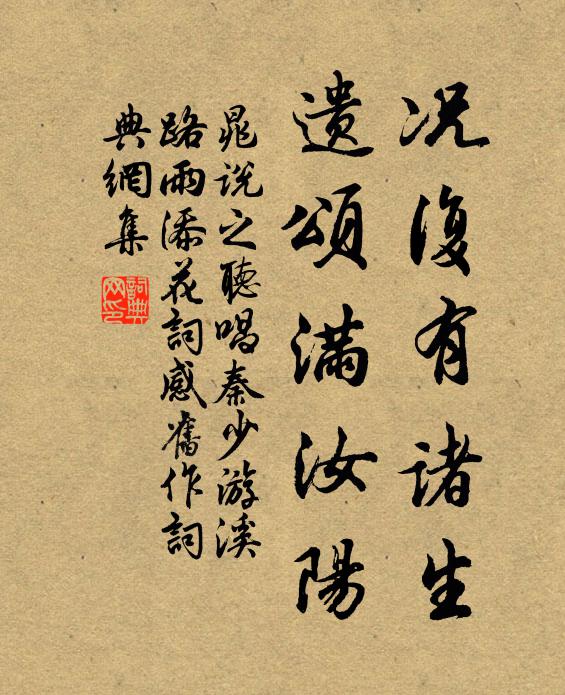 况復有诸生
遗頌满汝陽
晁说之聽唱秦少游溪
路雨添花詞感舊作詞
典網集
詞典
网印